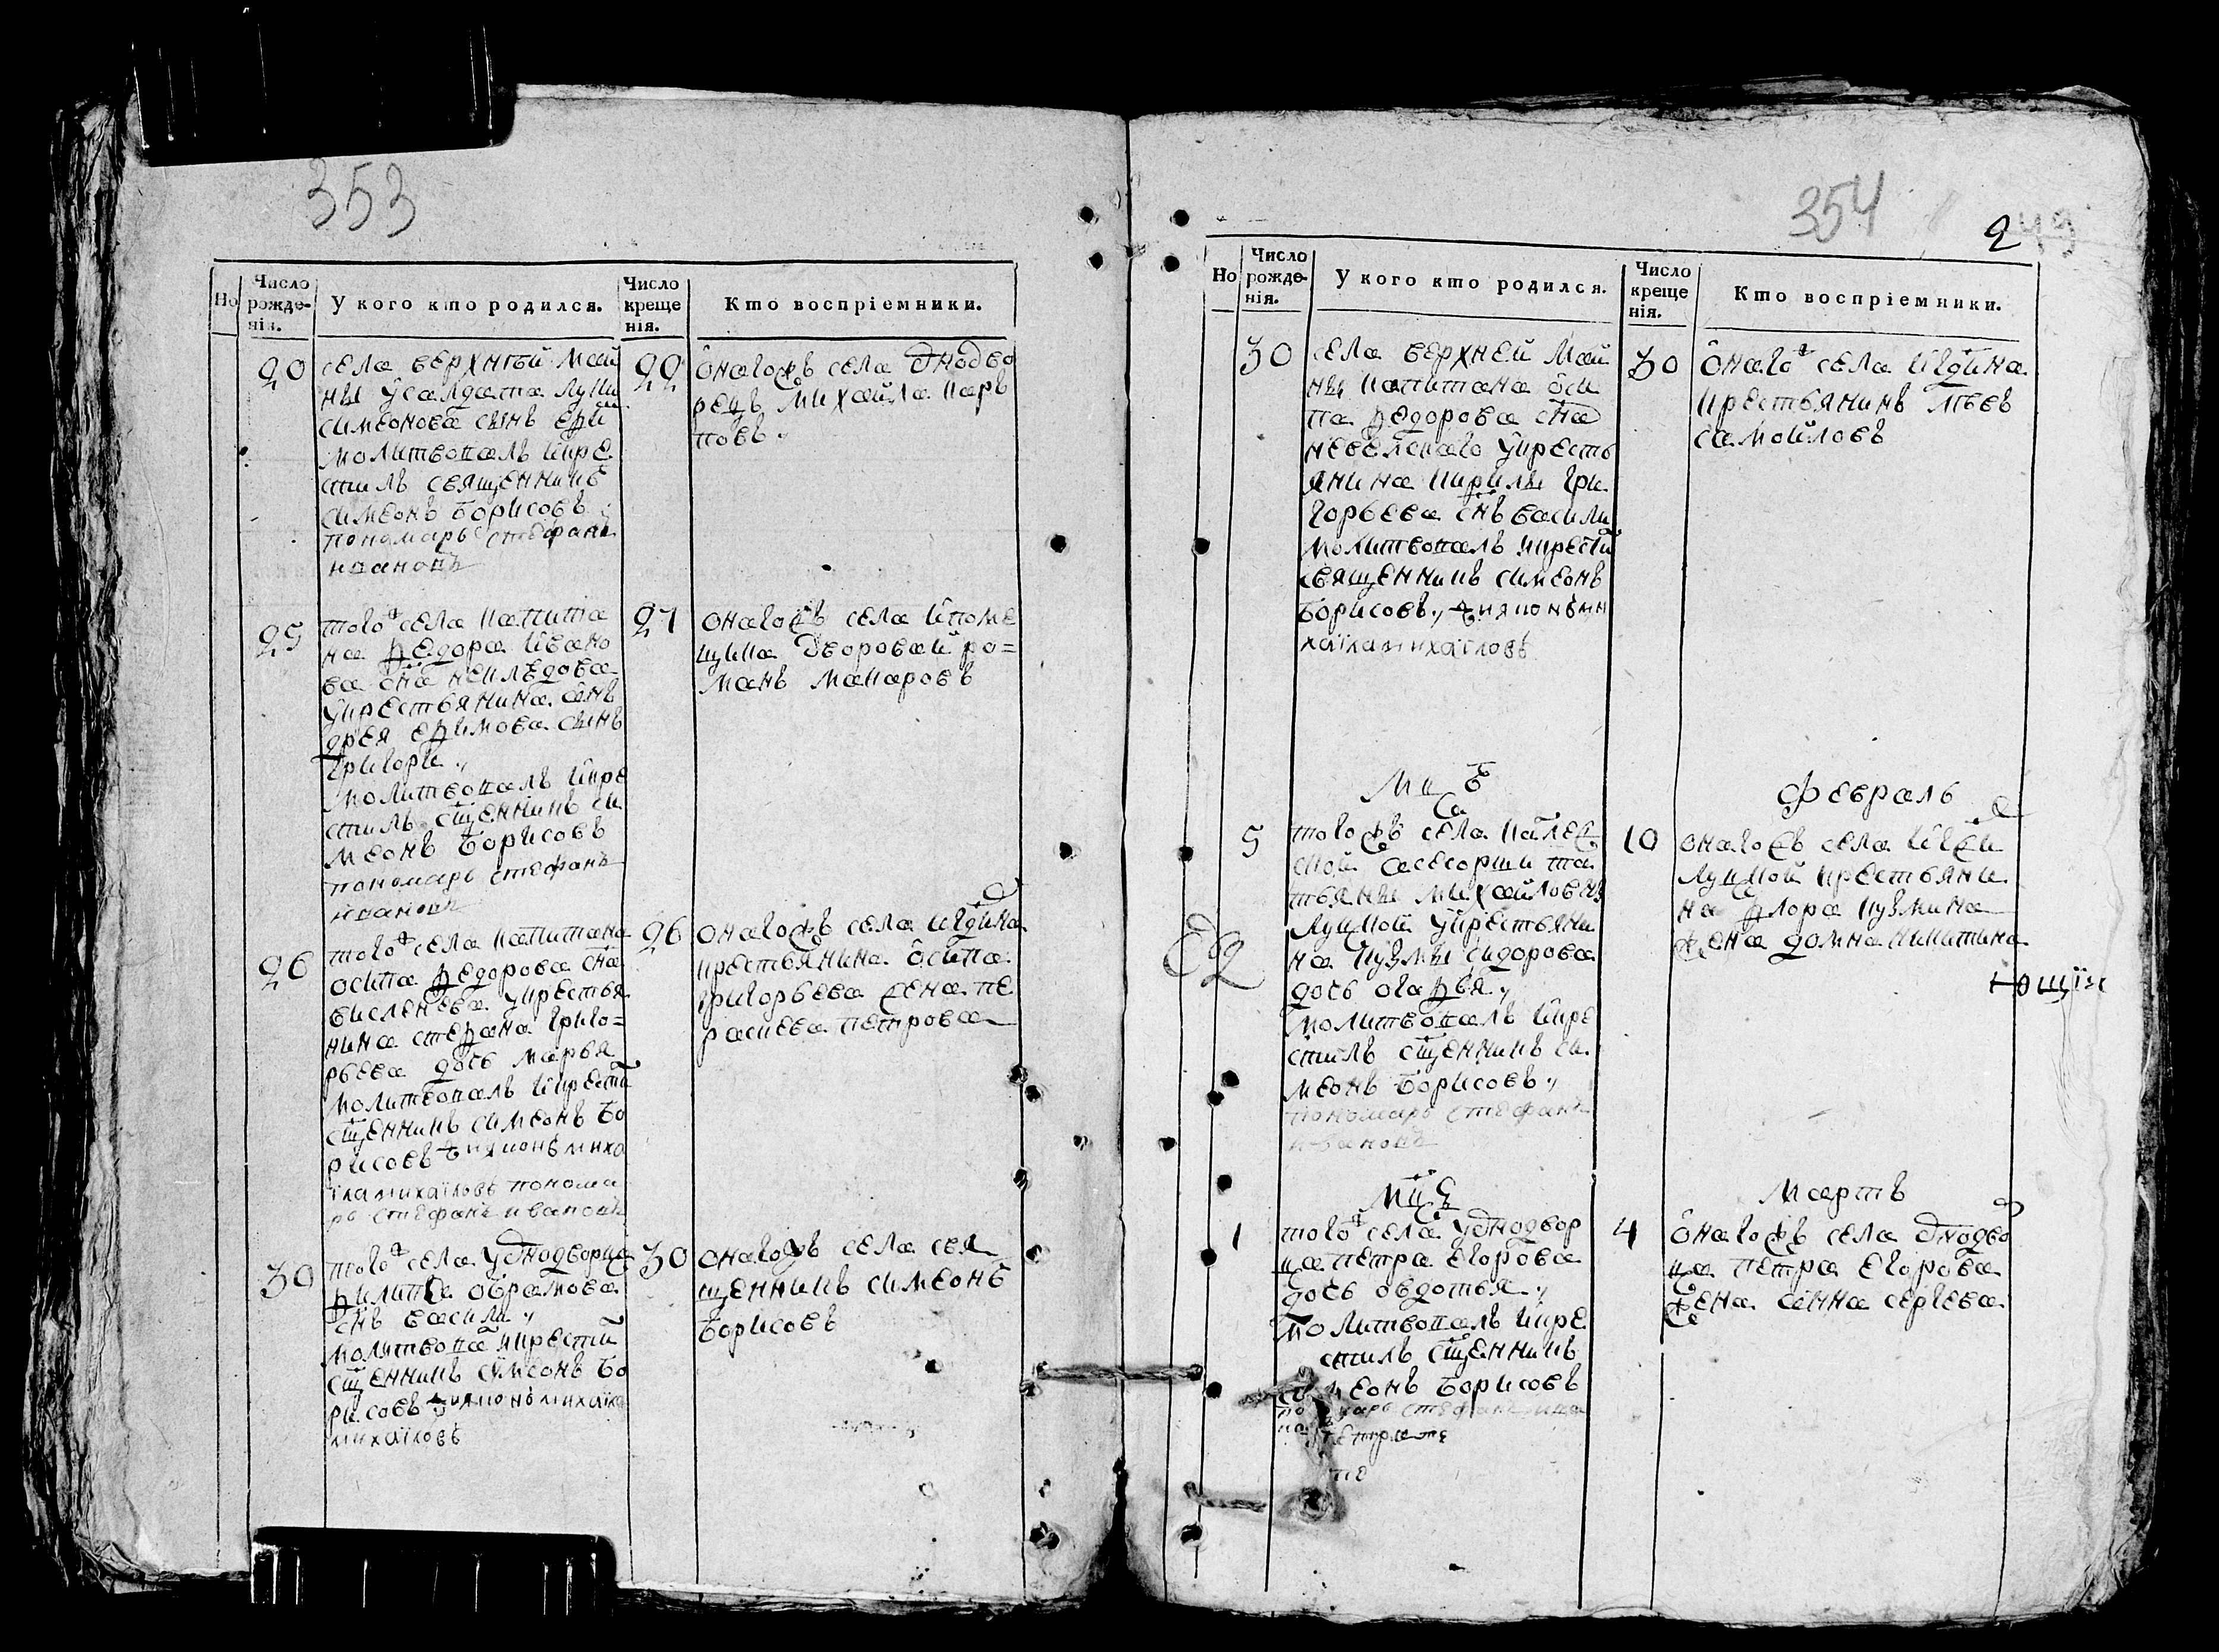 353
Но
Число рожде- нія.
У кого кто родился.
Число креще нія.
Кто воспріемники.
20
села верхнѣй май
ны ӱсалдата луки
симеонова сынъ ефи
молитвовалъ икре
стилъ священникъ
симеонъ борисовъ
пономарь стефанъ
ивановъ
22
онагожъ села однодво
рецъ михайла карь
повъ
25
тогож села капита
на федора ивано
ва сна неклюдова
укрестьянина анъ
дрея ефимова сынъ
григори
молитвовалъ икре
стилъ сщенникъ си
меонъ борисовъ
пономарь стефанъ
ивановъ
27
онагожъ села ипоме
щика дворовай ро=
манъ макаровъ
26
тогож села капитана
осипа федорова сна
висленева укрестья
нина стефана григо=
рьева дочь марья
молитвовалъ икрести
сщенникъ симеонъ бо
рисовъ дияконъ миха
іла михаіловъ понома
рь стефанъ ивановъ
26
онагожъ села игдина
крестьянина осипа
григорьева жена пе
раскева петрова
30
тогож села уоднодворца
филипа абрамова
снъ васили
молитвова икрести
сщенникъ симеонъ бо
рисовъ дияконъ михаіла
михаіловъ
30
онагожъ села свя
щенникъ симеонъ
борисовъ
354
249
Но
Число рожде- нія.
У кого кто родился.
Число креще нія.
Кто воспріемники.
30
села верхней май
ны капитана оси
па федорова сна
укресть
янина кирилы гри
горьева снъ васили
молитвовалъ икрести
священникъ симеонъ
борисовъ дияконъ ми
хаіла михаіловъ
30
онагож села игдина
крестьянинъ львъ
самойловъ
Февраль
5
тогожъ села
асесорши та
тьяны михайловны
укрестьяни
на кузмы сидорова
дочь агафья
молитвовалъ икре
стилъ сщенникъ си
меонъ борисовъ
пономарь стефанъ
ивановъ
10
онагожъ села
крестьяни
на флора кузмина
жена домна никитина
Мартъ
1
тогож села уоднодвор
ца петра егорова
дочь овдотья
молитвовалъ икре
стилъ сщенникъ
симеонъ борисовъ
4
онагожъ села однодво
ца петра егорова
жена анна сергѣева